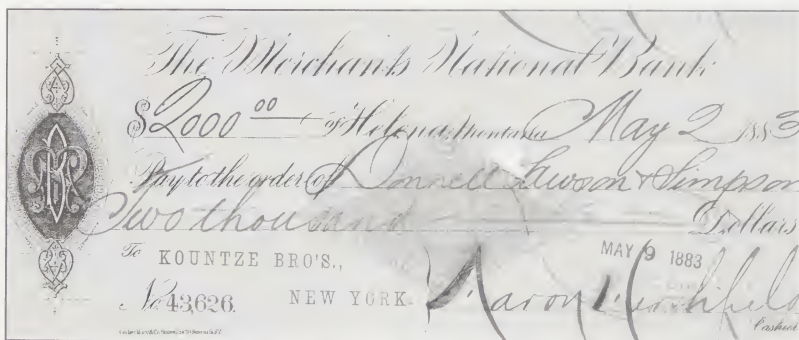 The Merchants National Bank
$2000 00 of Helena, Montana May 2 1883
Pay to the order of Donnell Lawson & Simpson
Two thousand Dollars
To KOUNTZE BRO'S.,
MAY 9 1883
No 43,626. NEW YORK. Aaron Hershfield
Cashier